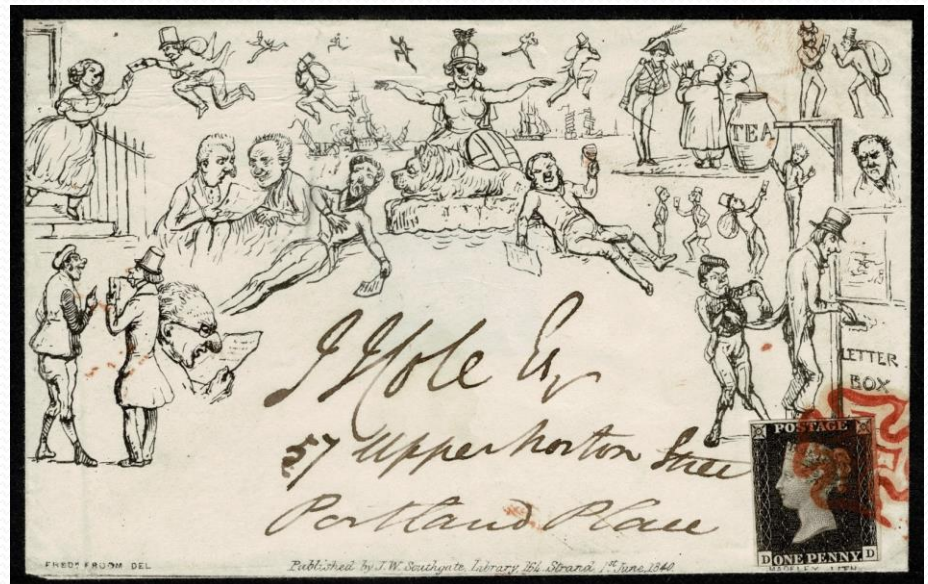 TEA
LETTER
BOX
J Hole Esq
57 Upper Norton Street
Portland Place
POSTAGE
D ONE PENNY D
FREDK FROOM DEL
Published by J.W. Southgate, Library, 164 Strand 1st June, 1840.
MADELEY LITH.